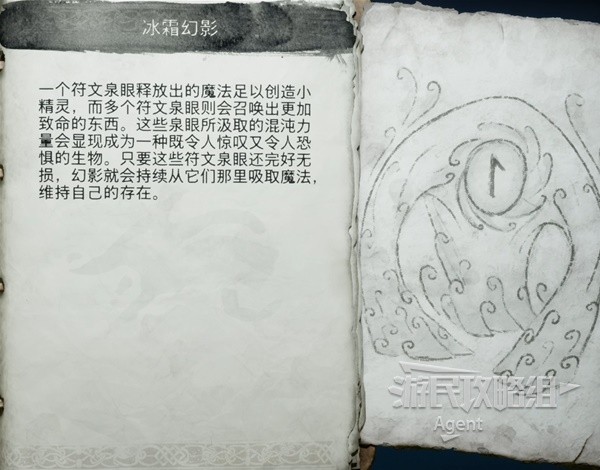 冰霜幻影
一个符文泉眼释放出的魔法足以创造小
精灵，而多个符文泉眼则会召唤出更加
致命的东西。这些泉眼所汲取的混沌力
量会显现成为一种既令人惊叹又令人恐
惧的生物。只要这些符文泉眼还完好无
损，幻影就会持续从它们那里吸取魔法，
维持自己的存在。
游民攻略组
Agent